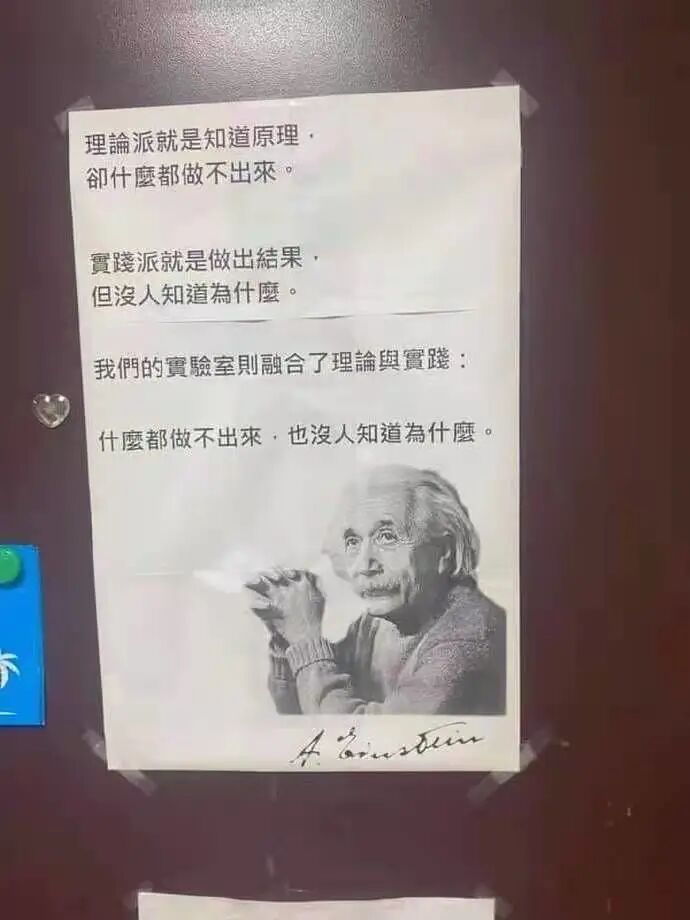 理論派就是知道原理，
卻什麼都做不出來。
實踐派就是做出結果，
但沒人知道為什麼。
我們的實驗室則融合了理論與實踐：
什麼都做不出來，也沒人知道為什麼。
A. Einstein